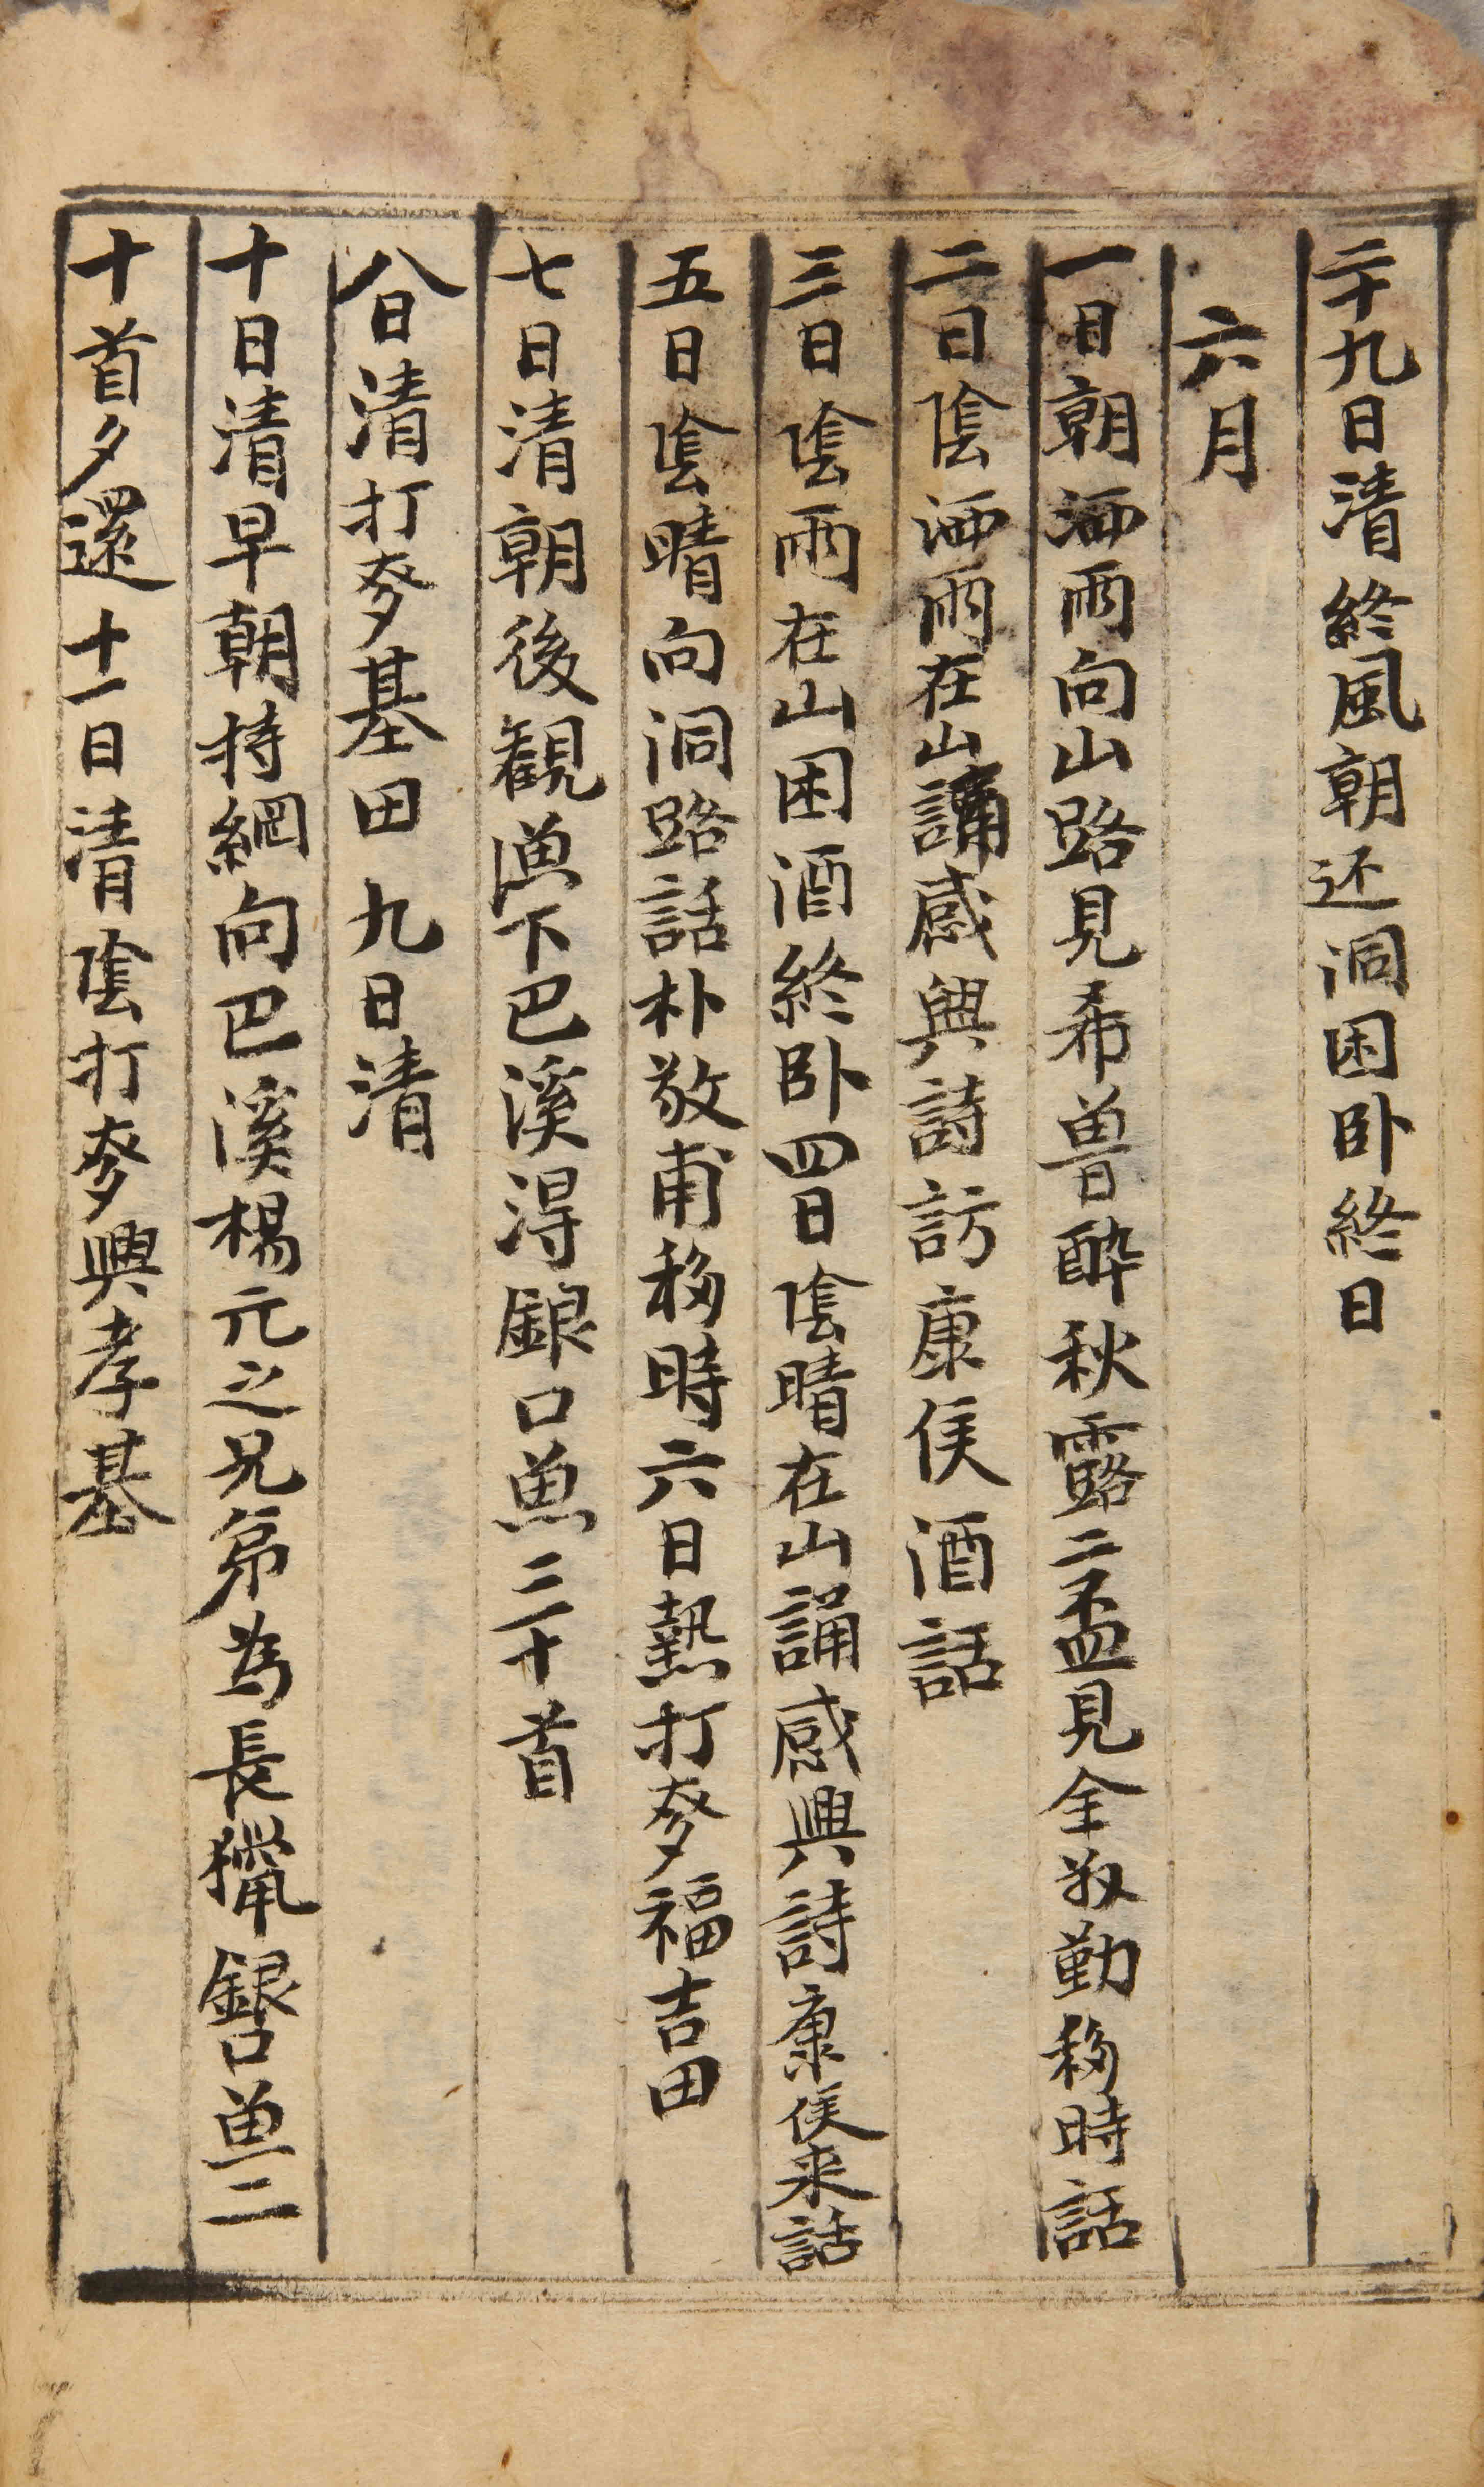 二十九日清終風朝还洞困卧終日
六月
一日朝洒雨向山路見希曽酔秋露二盃見全敬勤移時話
二日陰洒雨在山誦感興詩訪康侯酒話
三日陰雨在山困酒終卧四日陰晴在山誦感興詩康侯来話
五日陰晴向洞路話朴敬甫移時六日熱打麥福吉田
七日清朝後観漁下巴溪淂銀口魚三十首
八日清打麥基田九日清
十日清早朝持網向巴溪楊元之兄弟為長獵銀口魚二
十首夕還十一日清陰打麥興孝基